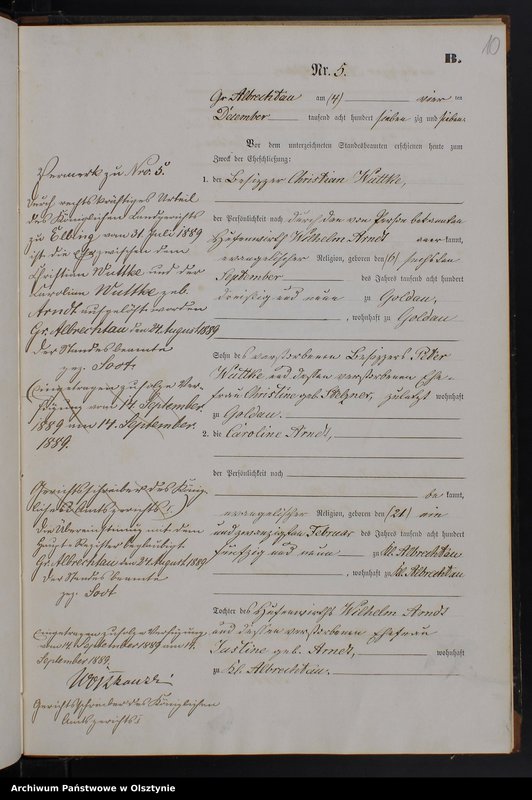 10
B.
Nr. 5.
Gr. Albrechtau am (4) vier ten
December tausend acht hundert sieben zig und sieben.
Vor dem unterzeichneten Standesbeamten erschienen heute zum
Zweck der Eheschließung:
1. der Besitzer Christian Wuttke,
der Persönlichkeit nach durch den von Person bekannten
Hufenwirth Wilhelm Arndt kannt,
evangelischer Religion, geboren den (6) sechsten
September des Jahres tausend acht hundert
dreißig und neun zu Goldau,
, wohnhaft zu Goldau
Sohn des verstorbenen Besitzers Peter
Wuttke und dessen verstorbenen Ehe-
frau Christine geb. zuletzt wohnhaft
zu Goldau.
2. die Caroline Arndt,
der Persönlichkeit nach
be kannt,
evangelischer Religion, geboren den (21) ein
und zwanzigsten Februar des Jahres tausend acht hundert
fünfzig und neun zu Kl. Albrechtau
, wohnhaft zu Kl. Albrechtau
Tochter des Hufenwirths Wilhelm Arndt
und dessen verstorbenen Ehefrau
Justine geb. Arndt, wohnhaft
zu Kl. Albrechtau.
Vermerk zu Nro. 5.
Durch rechtskräftiges Urteil
des Königlichen Landgerichts
zu Elbing vom 31. Juli 1889
ist die Ehe zwischen dem
Christian Wuttke und der
Caroline Wuttke geb.
Arndt aufgelöst worden
Gr. Albrechtau den 24. August 1889
Der Standesbeamte
gez. Sodt
Eingetragen zufolge Ver-
fügung vom 14. September
1889 am 14. September
1889.
Gerichtsschreiber des König-
lichen Amtsgerichts I.
Die Übereinstimmung mit dem
Haupt-Register beglaubigt
Gr. Albrechtau den 24. August 1889
Der Standesbeamte
gez. Sodt
Eingetragen zufolge Verfügung
vom 14. September 1889 am 14.
September 1889.
Gerichtsschreiber des Königlichen
Amtsgerichts I
Archiwum Państwowe w Olsztynie